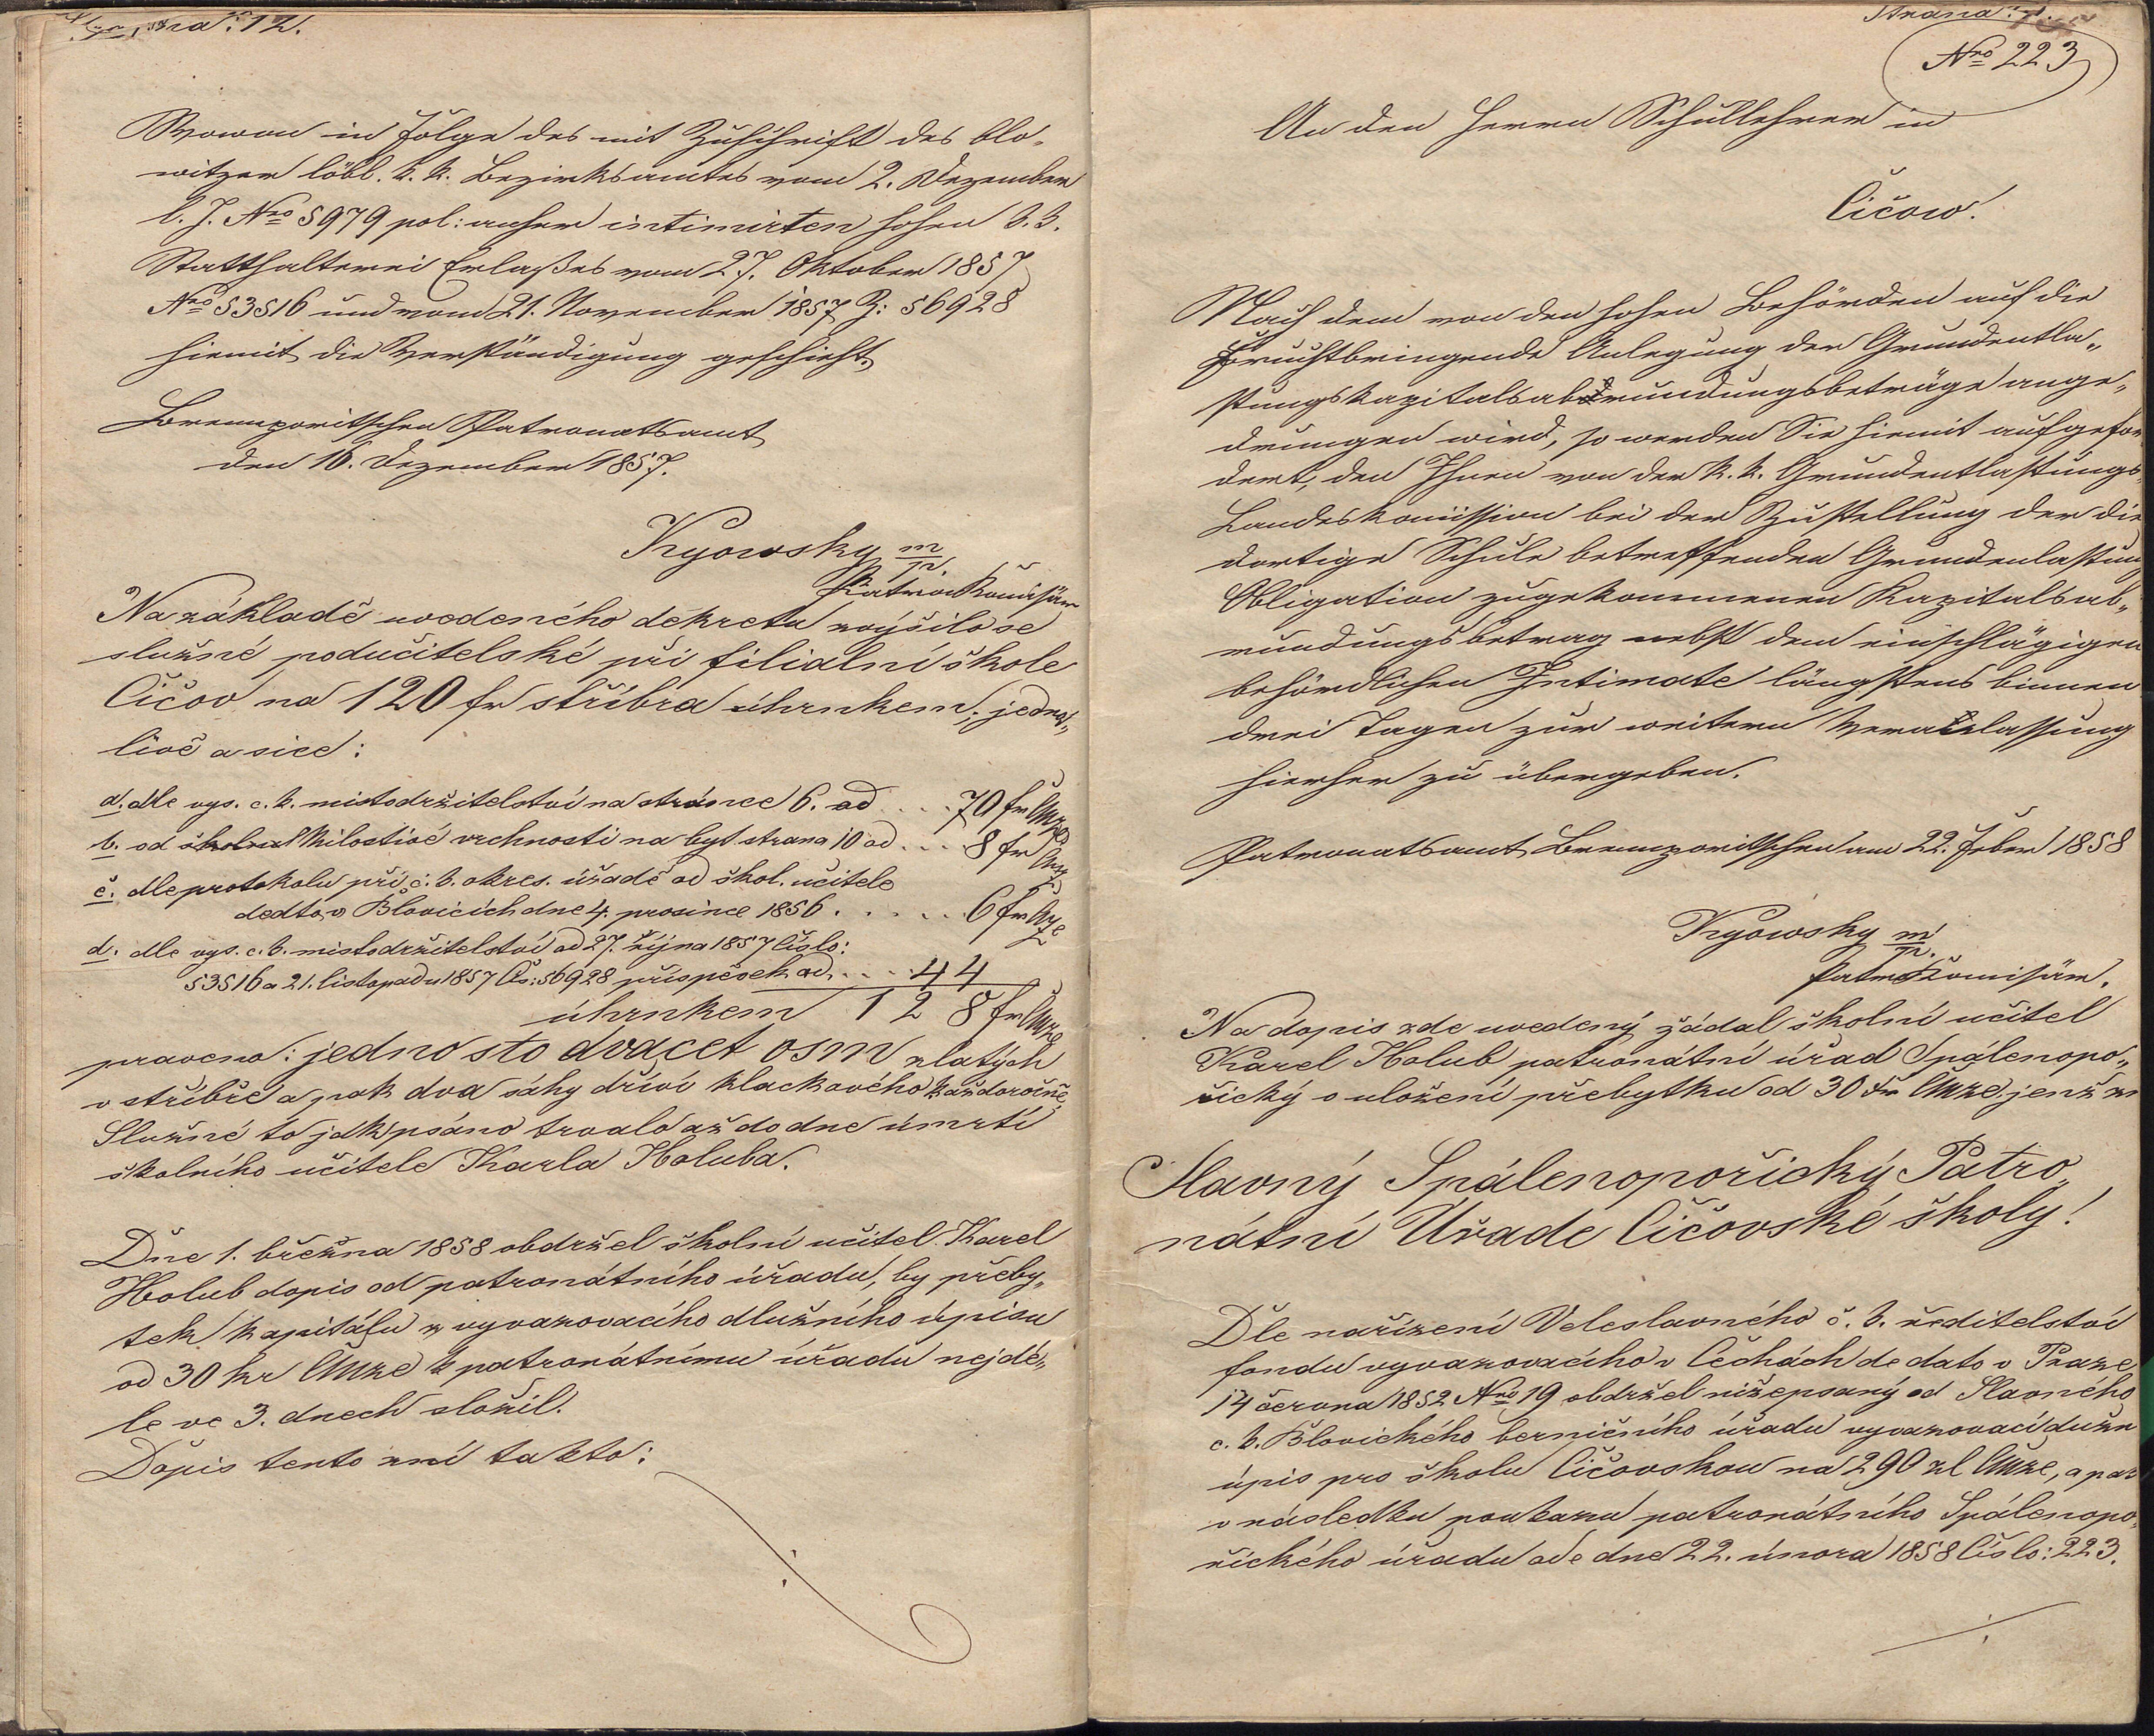 Strana: 12.
Wovon in Folge des mit Zuschrift des blo-
witzer löbl. k. k. Bezirksamtes vom 2. Dezember
l. J. Nro 5979 pol: anher intimirten hohen k. k.
Statthalterei Erlaßes vom 27. Oktober 1857
Nro 53516 und vom 21. November 1857 Z: 56928
hiemit die Verständigung geschieht.
Brennporitschen Patronatsamt
den 16. Dezember 1857.
Kyowsky m/p.
Patron Komißär
Na základě uvedeného dekretu zvýšilo se
služné podučitelské při filialní škole
Čičov na 120 fr stříbra úhrnkem; jedno„
livě a sice:
a. dle vys. c. k. mistodržitelství na stránce 6. od . . . 70 fr
b. od Milostivé vrchnosti na byt strana 10 od . . . 8 fr
č. dle protokolu při c. k. okres. úřadě od škol. učitele
dedto v Blovicích dne 4. prosince 1856 . . . . . . 6 fr
d. dle vys. c. k. mistodržitelství od 27. října 1857 číslo:
53516 a 21. listopadu 1857 Čís: 56928 příspěvek od . . . 44
úhrnkem 128 fr
praveno: jedno sto dvacet osm zlatých
v stříbře a pak dva sáhy dříví klackového každoročně,
Služné to jak psáno trvalo až do dne úmrtí
školního učitele Karla Holuba.
Dne 1. března 1858 obdržel školní učitel Karel
Holub dopis od patronátního úřadu, by přeby„
tek kapitálu z vyvazovacího dlužního úpisu
od 30 kr k patronátnímu úřadu nejdé„
le ve 3. dnech složil.
Dopis tento zní takto:
Strana:
Nro 223
An den Herrn Schullehrer in
Čičow.
Nach dem von den hohen Behörden auf die
Fruchtbringende Anlegung der Grundentla„
stungskapitalsabrundungsbeträge ange„
drungen wird, so werden Sie hiemit aufgefor
dert, den Ihnen von der k. k. Grundentlastungs
Landeskomission bei der Zustellung der die
dortige Schule betreffenden Grundenlastung
Obligation zugekommenen Kapitalsab„
rundungsbetrag nebst dem einschlägigen
behördlichen Intimate längstens binnen
drei Tagen zur weitern Veranlassung
hierher zu übergeben.
Patronatsamt Brennporitschen am 22. Feber 1858
Kyowsky m/p.
Patro Komisär.
Na dopis zde uvedený žádal školní učitel
Karel Holub patronátní úřad Spálenopo„
řický o uložení přebytku od 30 jenž zn
Slavný Spálenopořický Patro„
nátní Úřade Čičovské školy!
Dle nařízení Veleslavného c. k. ředitelství
fondu vyvazovacího v Čechách de dato v Praze
14 června 1852 Nro 19 obdržel nižepsaný od Slavného
c. k. Blovického berničního úřadu vyvazovací dužn
úpis pro školu Čičovskou na 290 zl, a pak
v následku poukazu patronátního Spálenopo„
řického úřadu ode dne 22. února 1858 Číslo: 223.